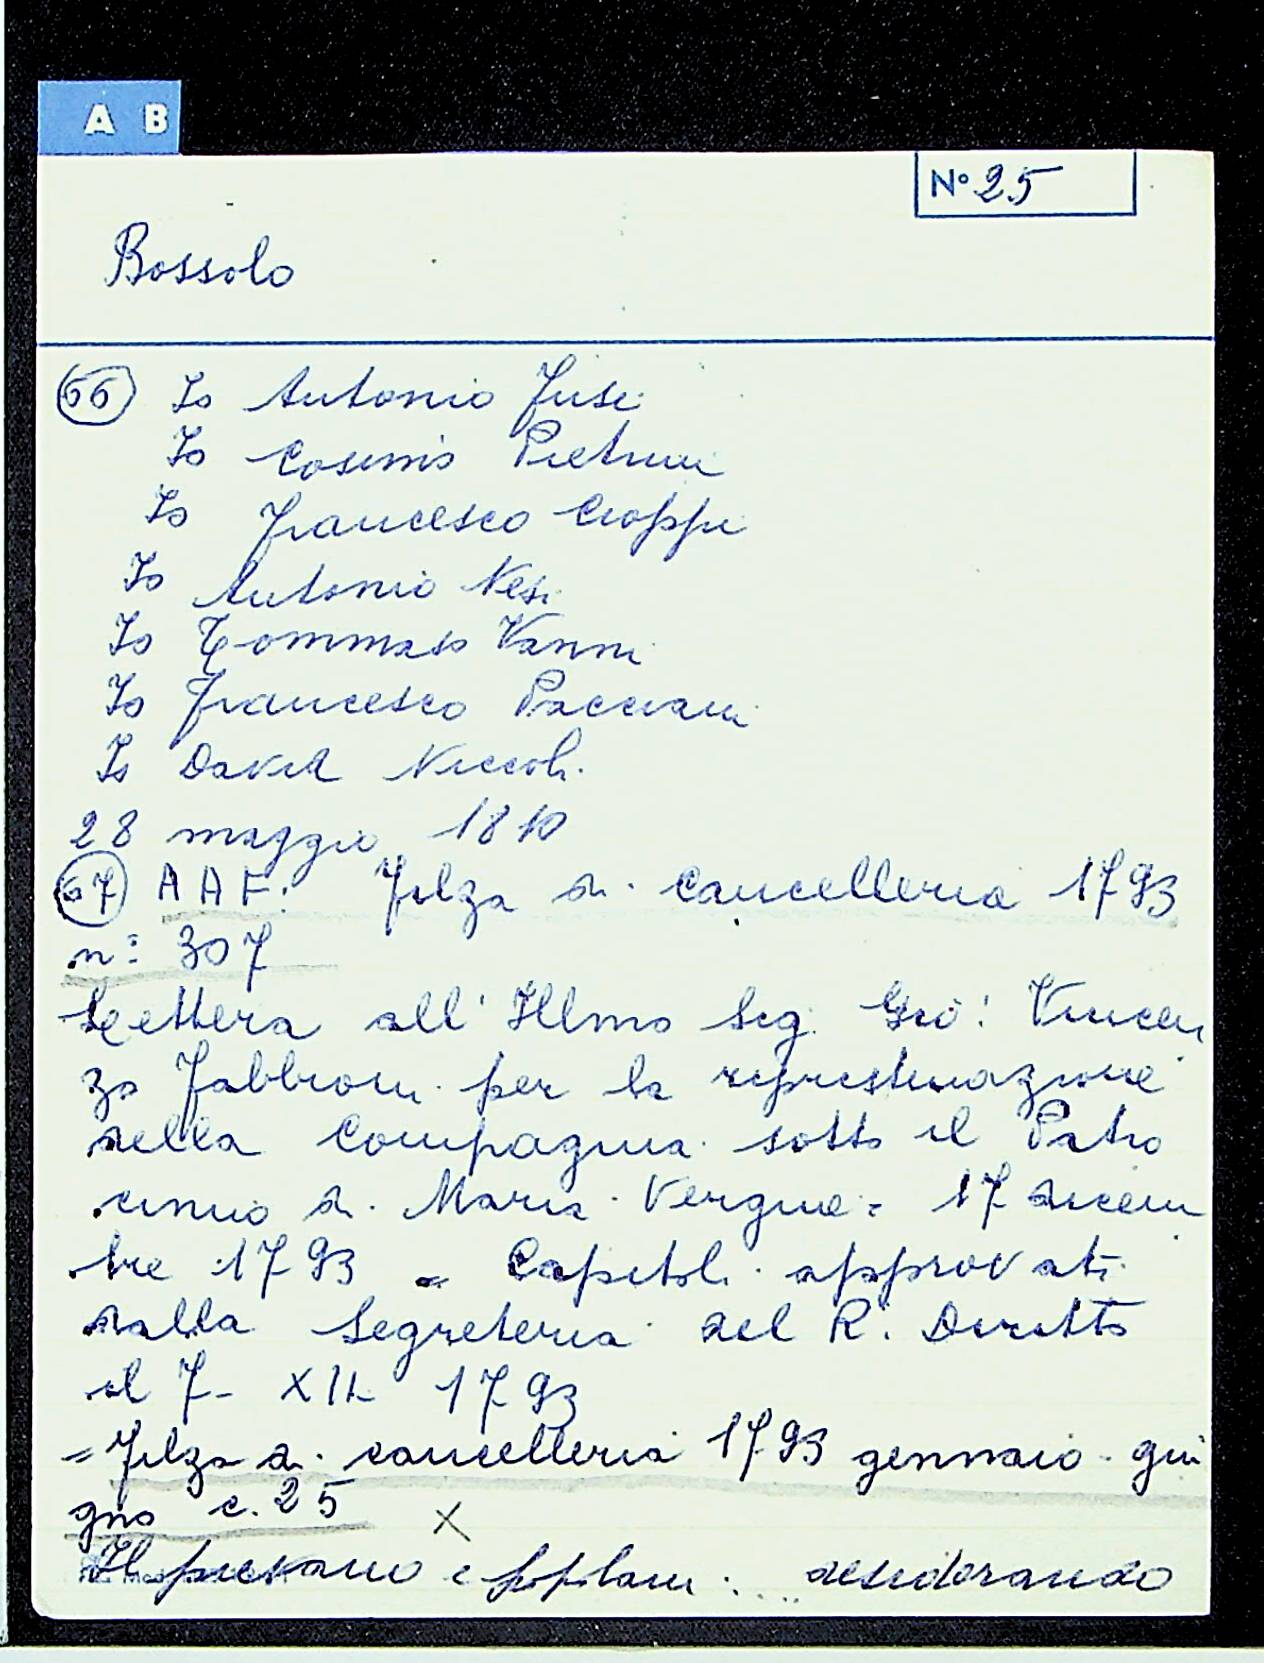 A B
N° 25
Bossolo
66 Io Antonio Fusi
Io Cosimo Pietrini
Io Francesco Cioppi
Io Antonio Nesi
Io Tommaso Vanni
Io Francesco Pacciani
Io David Niccoli.
28 maggio 1810
67 A A F. Filza di cancelleria 1793
n: 307
Lettera all' Illmo Sig. Gio: Vincen
zo Fabbroni per la ripristinazione
della Compagnia sotto il Patro
cinio di Maria Vergine = 17 dicem
bre 1793 = Capitoli approvati
dalla Segreteria del R. Diritto
il 7- XII 1793
= Filza di cancelleria 1793 gennaio - giu
gno c. 25 X
Il pievano e popolani .... desiderando